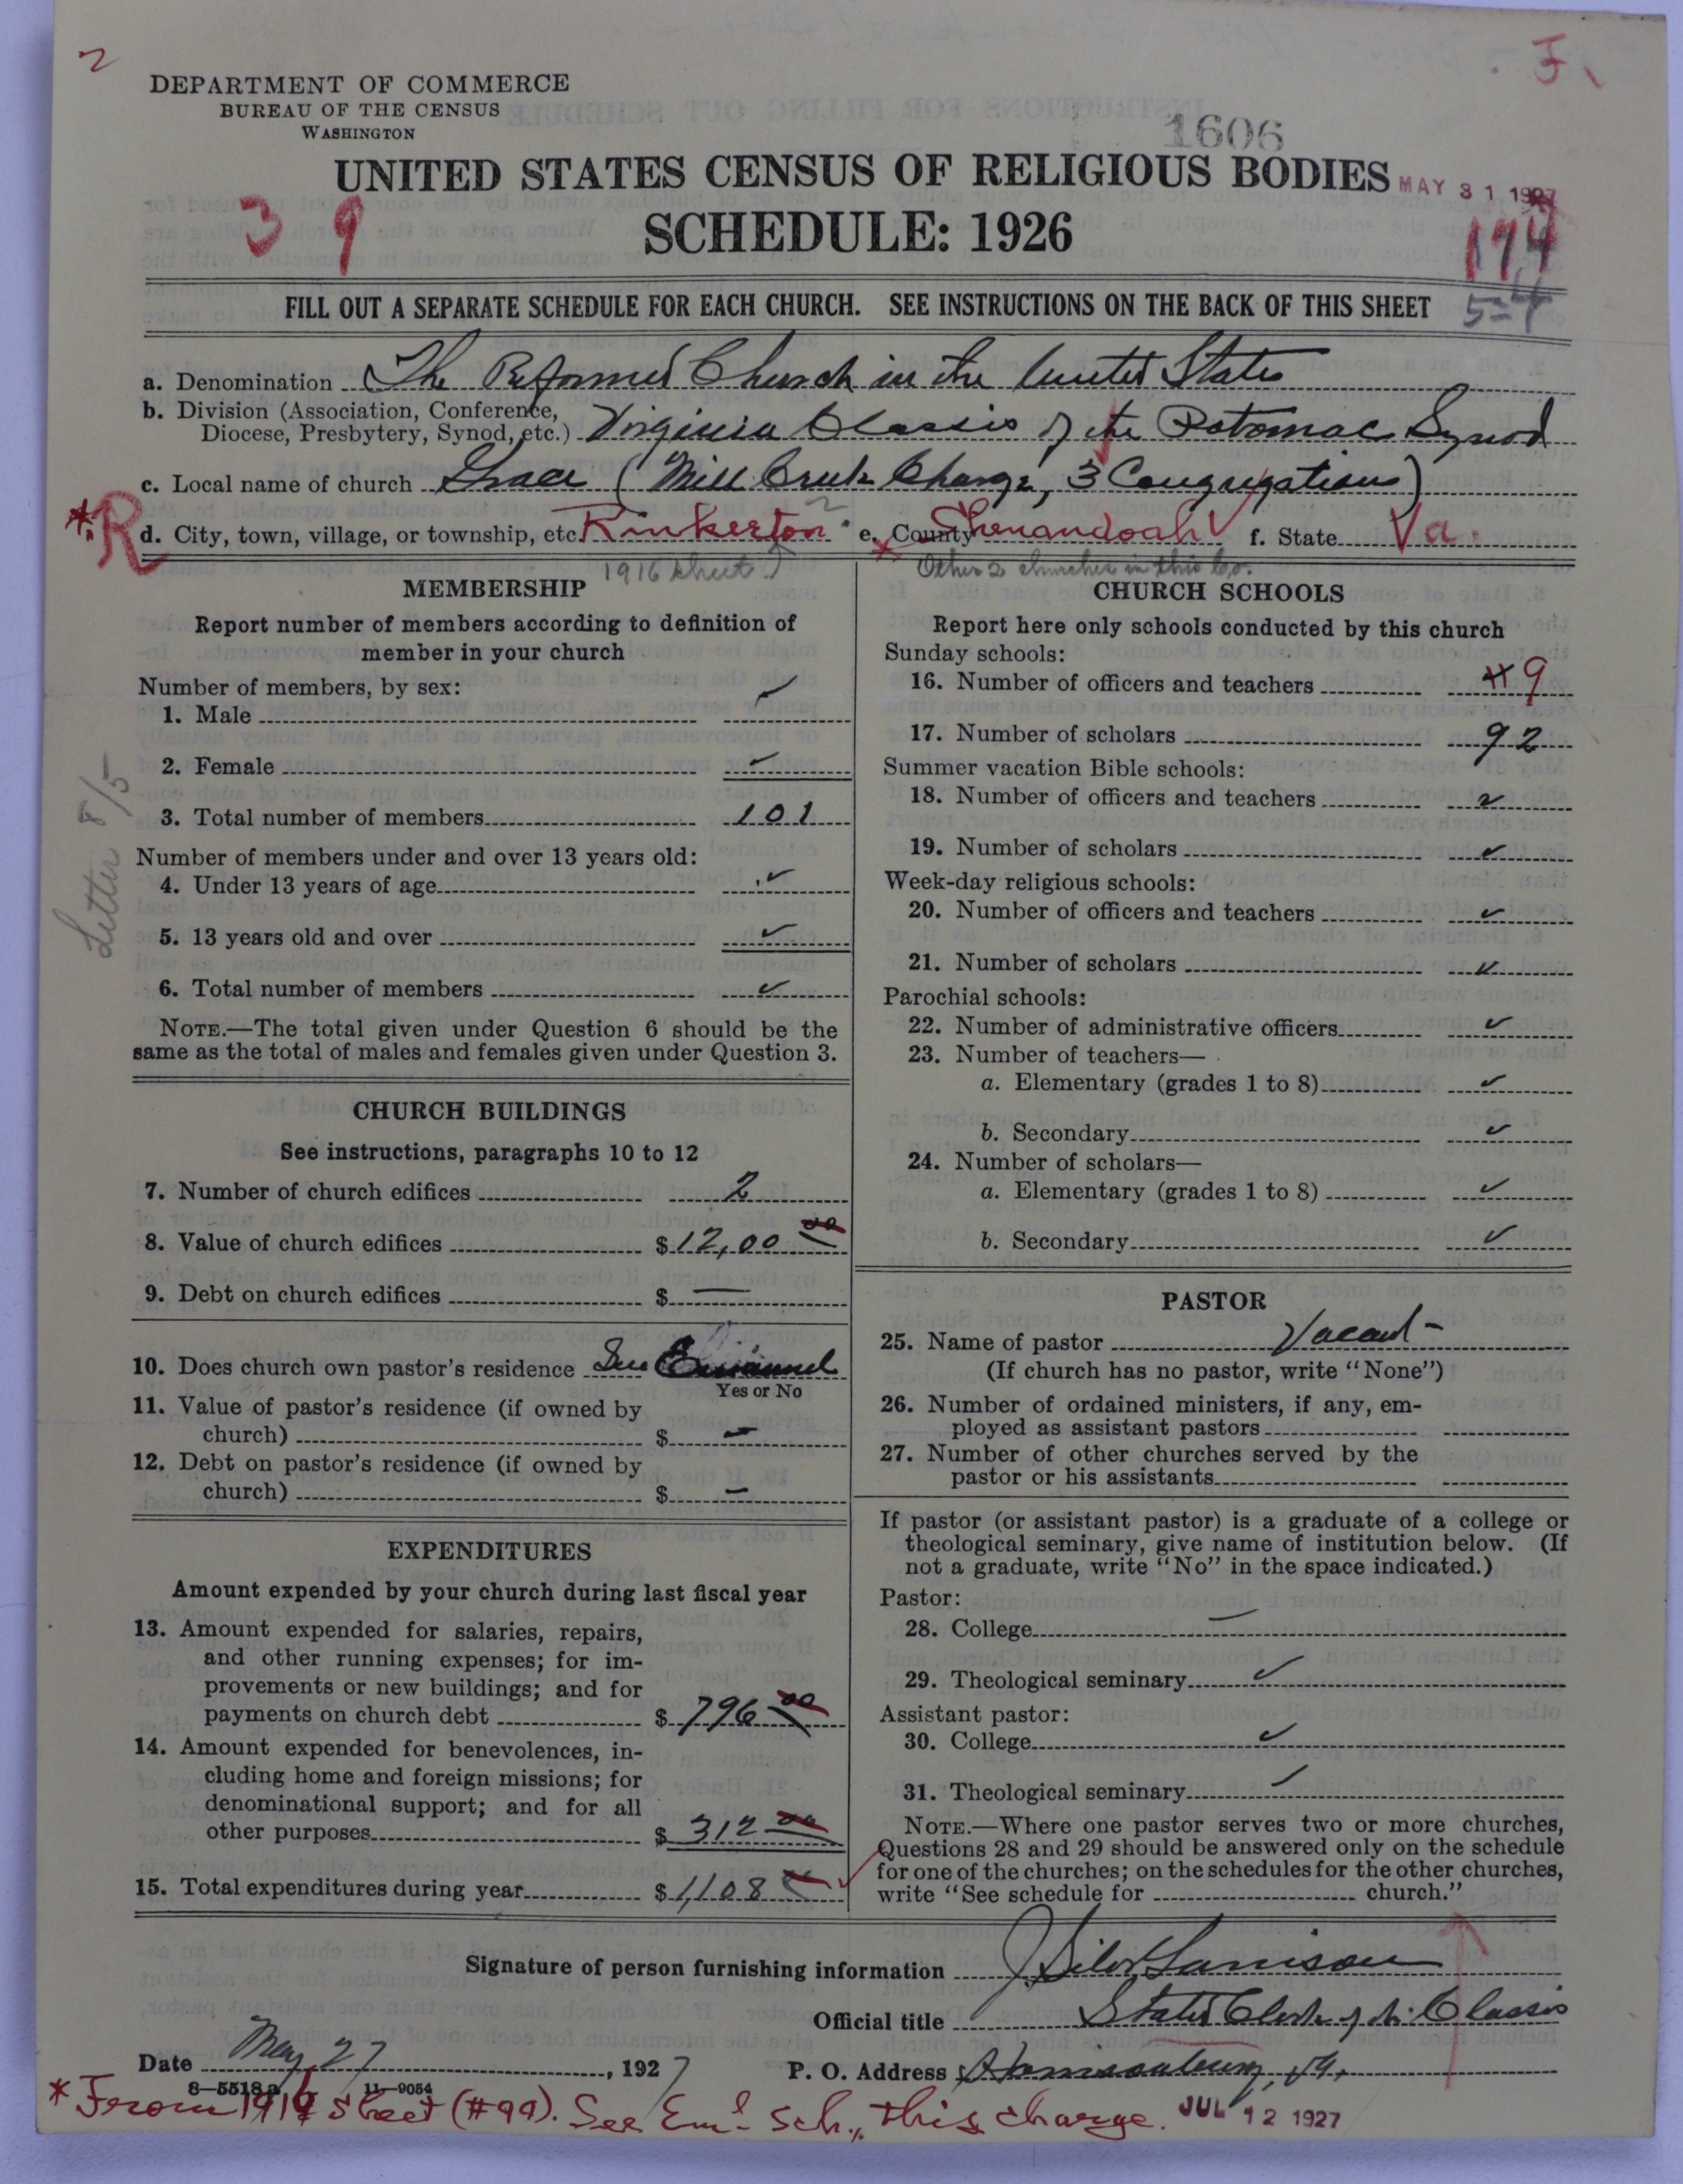 2
F
DEPARTMENT OF COMMERCE
BUREAU OF THE CENSUS
WASHINGTON
1606
UNITED STATES CENSUS OF RELIGIOUS BODIES
MAY 31 1927
SCHEDULE: 1926
3 9
174
5=4
FILL OUT A SEPARATE SCHEDULE FOR EACH CHURCH. SEE INSTRUCTIONS ON THE BACK OF THIS SHEET
a. Denomination The Reformed Church in the United States
b. Division (Association, Conference,
Diocese, Presbytery, Synod, etc.) Virginia Classis of the Potomac Synod
c. Local name of church Grace (Mill Creek Charge, 3 Congregations)
*R d. City, town, village, or township, etc. Rinkerton e. County Shenandoah f. State Va.
1916 sheet
* Other 2 churches in this Co.
MEMBERSHIP
Report number of members according to definition of
member in your church
Number of members, by sex:
1. Male ✓
2. Female ✓
3. Total number of members 101
Number of members under and over 13 years old:
4. Under 13 years of age ✓
5. 13 years old and over ✓
6. Total number of members ✓
NOTE.—The total given under Question 6 should be the
same as the total of males and females given under Question 3.
Letter 8/5
CHURCH BUILDINGS
See instructions, paragraphs 10 to 12
7. Number of church edifices 2
8. Value of church edifices $12,00 00
9. Debt on church edifices $ —
10. Does church own pastor's residence See Emanuel
Yes or No
11. Value of pastor's residence (if owned by
church) $ —
12. Debt on pastor's residence (if owned by
church) $ —
EXPENDITURES
Amount expended by your church during last fiscal year
13. Amount expended for salaries, repairs,
and other running expenses; for im-
provements or new buildings; and for
payments on church debt $ 796 00
14. Amount expended for benevolences, in-
cluding home and foreign missions; for
denominational support; and for all
other purposes $ 312 00
15. Total expenditures during year $1108
CHURCH SCHOOLS
Report here only schools conducted by this church
Sunday schools:
16. Number of officers and teachers 9
17. Number of scholars 92
Summer vacation Bible schools:
18. Number of officers and teachers ✓
19. Number of scholars ✓
Week-day religious schools:
20. Number of officers and teachers ✓
21. Number of scholars ✓
Parochial schools:
22. Number of administrative officers ✓
23. Number of teachers—
a. Elementary (grades 1 to 8) ✓
b. Secondary ✓
24. Number of scholars—
a. Elementary (grades 1 to 8) ✓
b. Secondary ✓
PASTOR
25. Name of pastor Vacant -
(If church has no pastor, write "None")
26. Number of ordained ministers, if any, em-
ployed as assistant pastors
27. Number of other churches served by the
pastor or his assistants
If pastor (or assistant pastor) is a graduate of a college or
theological seminary, give name of institution below. (If
not a graduate, write "No" in the space indicated.)
Pastor:
28. College —
29. Theological seminary ✓
Assistant pastor:
30. College ✓
31. Theological seminary ✓
NOTE.—Where one pastor serves two or more churches,
Questions 28 and 29 should be answered only on the schedule
for one of the churches; on the schedules for the other churches,
write "See schedule for church."
Signature of person furnishing information J Silor Garrison
Official title Stated Clerk of the Classis
Date May 27, 1927 P. O. Address Harrisonburg, Va.
8—5518a 11—9054
* From 1916 sheet (#99). See Eml. sch., this charge.
JUL 12 1927